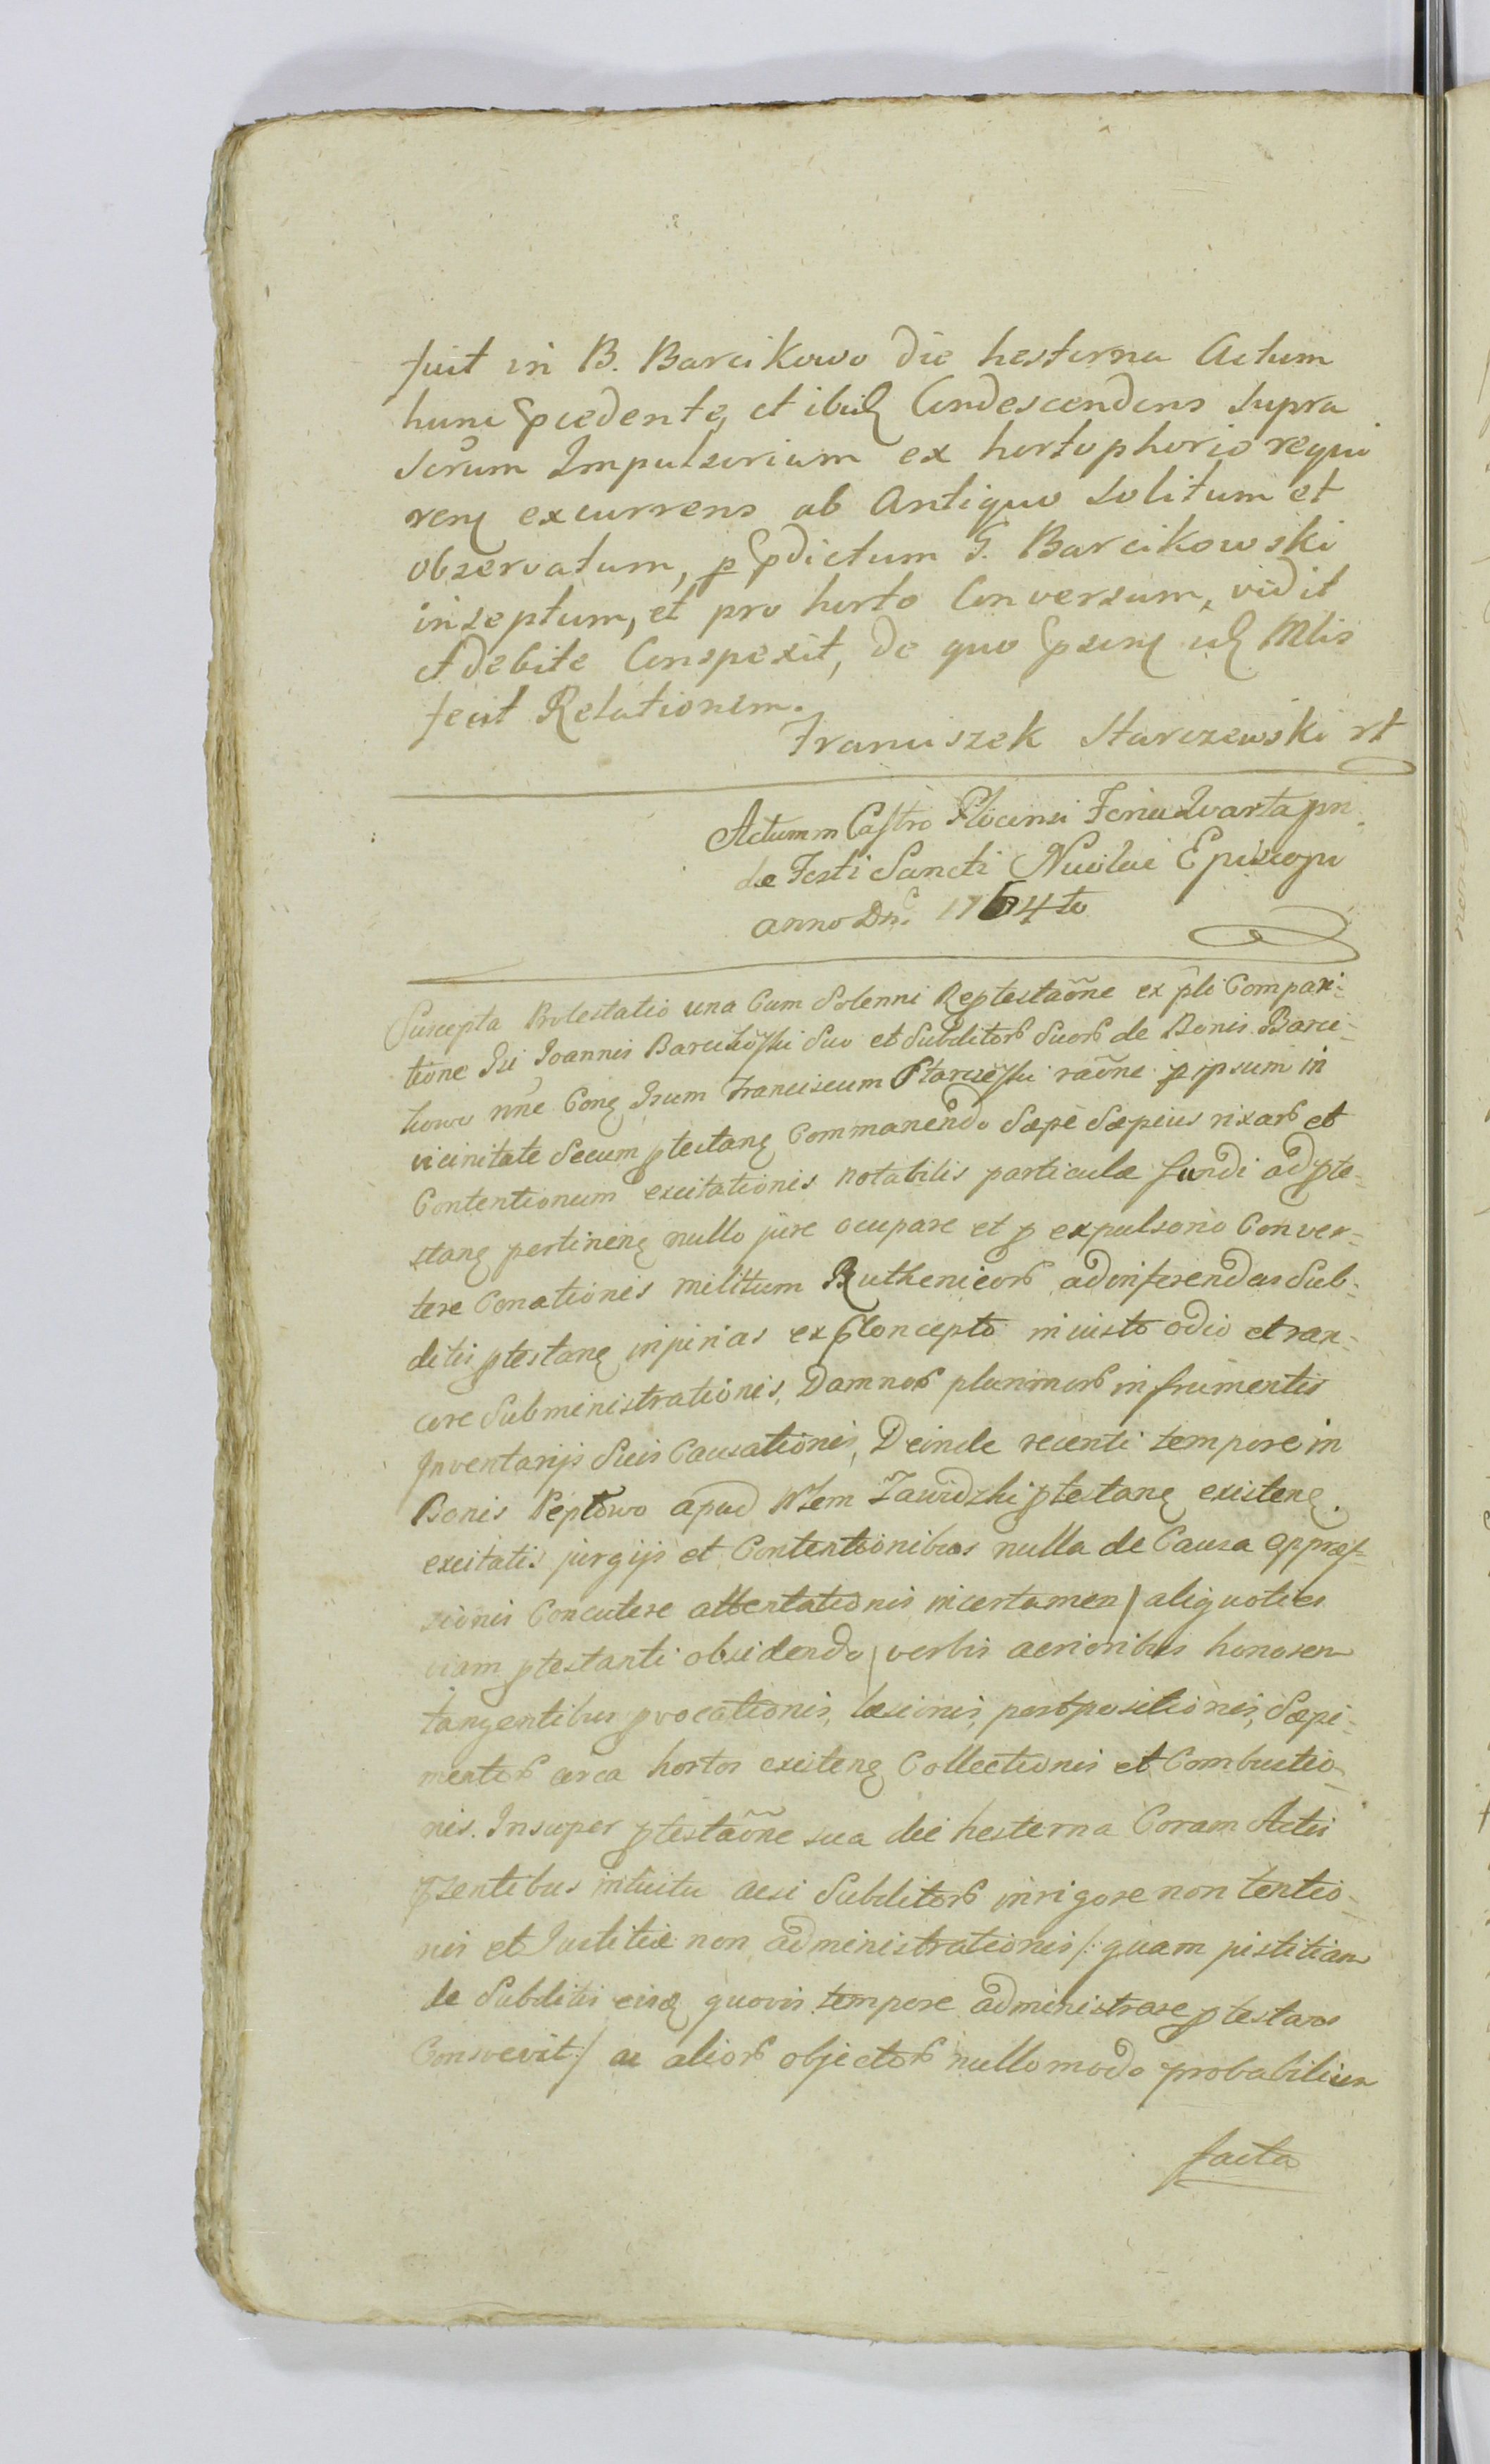 fuit in B. Barcikowo die hesterna Actum
hunc pcedente, et ibid Condescendens supra
Scrum Impulsorium ex hortophorio requi
ren excurrens ab Antiquo solitum et
observatum, p pdictum G. Barcikowski
inseptum, et pro horto Conversum, vidit
et debite Conspexit, de quo psen id Mlis
fecit Relationem.
Franciszek Starczewski rt
Actum in Castro Plocensi Feria Quarta pri
die Festi Sancti Nicolai Episcopi
anno Dni 1764to
Suscepta Protestatio una Cum Solenni Reptestaõne ex pli Compari-
tione Gsi Joannis Barcikoski Suo et Subditorȣ Suorȣ de Bonis Barci-
kowo nñe Conȝ Gsum Franciscum Starczeski raõne p ipsum in
vicinitate Secum ptestanȝ Commanendo Sæpe Sæpius rixarȣ et
Contentionum excitationis notabilis particulæ fundi ad pte-
stanȝ pertinenȝ nullo jure ocupare et p expulsorio Conver-
tere Conationis militum Ruthenicorȣ ad inferendas Sub-
ditis ptestanȝ injurias ex pConcepto iniusto odio et ran-
core Subministrationis, Damnorȣ plurimorȣ in frumentis
Inventarijs Suis Causationis, Deinde recenti tempore in
Bonis Peptowo apud Zawidzki ptestanȝ existenȝ.
excitatis jurgijs et Contentionibus nulla de Causa oppres-
sionis Concutere attentationis in certamen / aliquoties
viam ptestanti obsidendo / verbis acrioribus honorem
tangentibus pvocationis, læsionis, postpositionis, Sæpi-
mentorȣ circa hortos existenȝ Collectionis et Combustio-
nis. Insuper ptestaõne sua die hesterna Coram Actis
psentibus intuitu acsi Subditorȣ in rigore non tentio-
nis et Justitiæ non administrationis /: quam justitiam
de Subditis eisdȝ quovis tempore administrare ptestans
Consvevit :/ ac aliorȣ objectorȣ nullo modo probabilium
facta